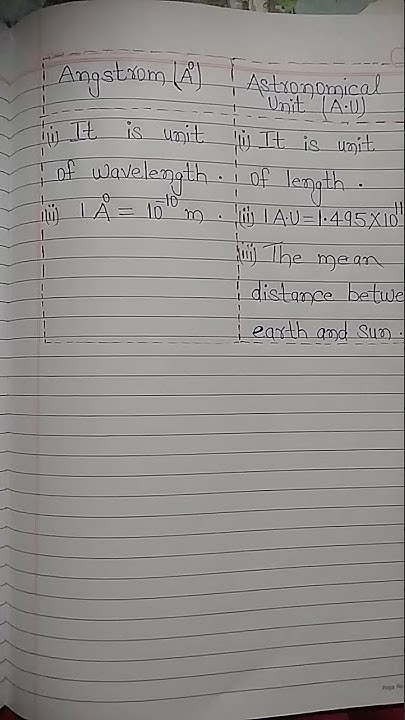 Angstrom (Å)
(i) It is unit
of wavelength.
(ii) 1 Å = 10⁻¹⁰ m.
Astronomical
Unit (A.U)
(i) It is unit
of length.
(ii) 1 A.U = 1.495X10¹¹
(iii) The mean
distance betwe
earth and sun.